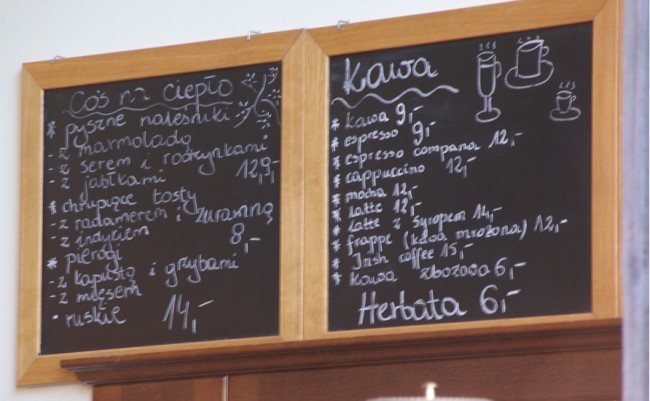 Coś na ciepło
* pyszne naleśniki
- z marmoladą
- z serem i rodzynkami
- z jabłkami 12,9,-
* chrupiące tosty
- z radamerem i żurawiną
- z indykiem 8,-
* pierogi
- z kapustą i grzybami
- z mięsem
- ruskie 14,-
Kawa
* kawa 9,-
* espresso 9,-
* espresso compana 12,-
* cappuccino 12,-
* mocha 12,-
* latte 12,-
* latte z syropem 14,-
* frappe (kawa mrożona) 12,-
* Irish coffee 15,-
* kawa zbożowa 6,-
Herbata 6,-